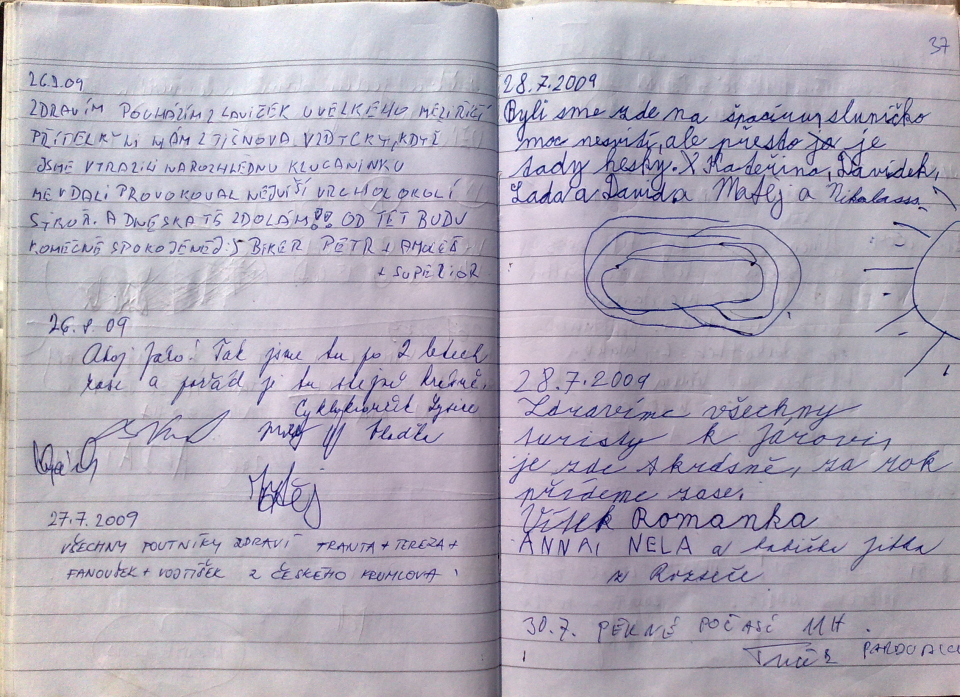 26.7.09
ZDRAVÍM POCHÁZÍM Z LAVIČEK U VELKÉHO MEZIŘÍČÍ
PŘÍTELKYNI MÁM Z TIŠNOVA VŽDYCKY, KDYŽ
JSME VYRAZILI NA ROZHLEDNU KLUCANINKU
ME V DÁLI PROVOKOVAL NEJVIŠÍ VRCHOL OKOLÍ
A DNESKA TĚ ZDOLÁM!! OD TEĎ BUDU
KONEČNĚ SPOKOJENEJ :) BIKER PETR +
+ SUPERIOR
26.7.09
Ahoj Tak jsme tu po 2 letech
zase a pořád je tu stejně krásně.
Lysice
27.7.2009
VŠECHNY POUTNÍKY ZDRAVÍ FRANTA + TEREZA +
FANOUŠEK + VOJTÍŠEK Z ČESKÉHO KRUMLOVA
37
28.7.2009
Byli sme zde na špacíru, sluníčko
moc nesvítí, ale přesto je
tady hesky. Kateřina, Davídek,
Lada a David a Matěj a Nikolass
28.7.2009
Zdravíme všechny
turisty k
je zde krásně, za rok
přídeme zase.
Vítek Romanka
ANNA, NELA a babička Jitka
z
30.7. PĚKNÉ POČASÍ 11H.
PARDUBICE